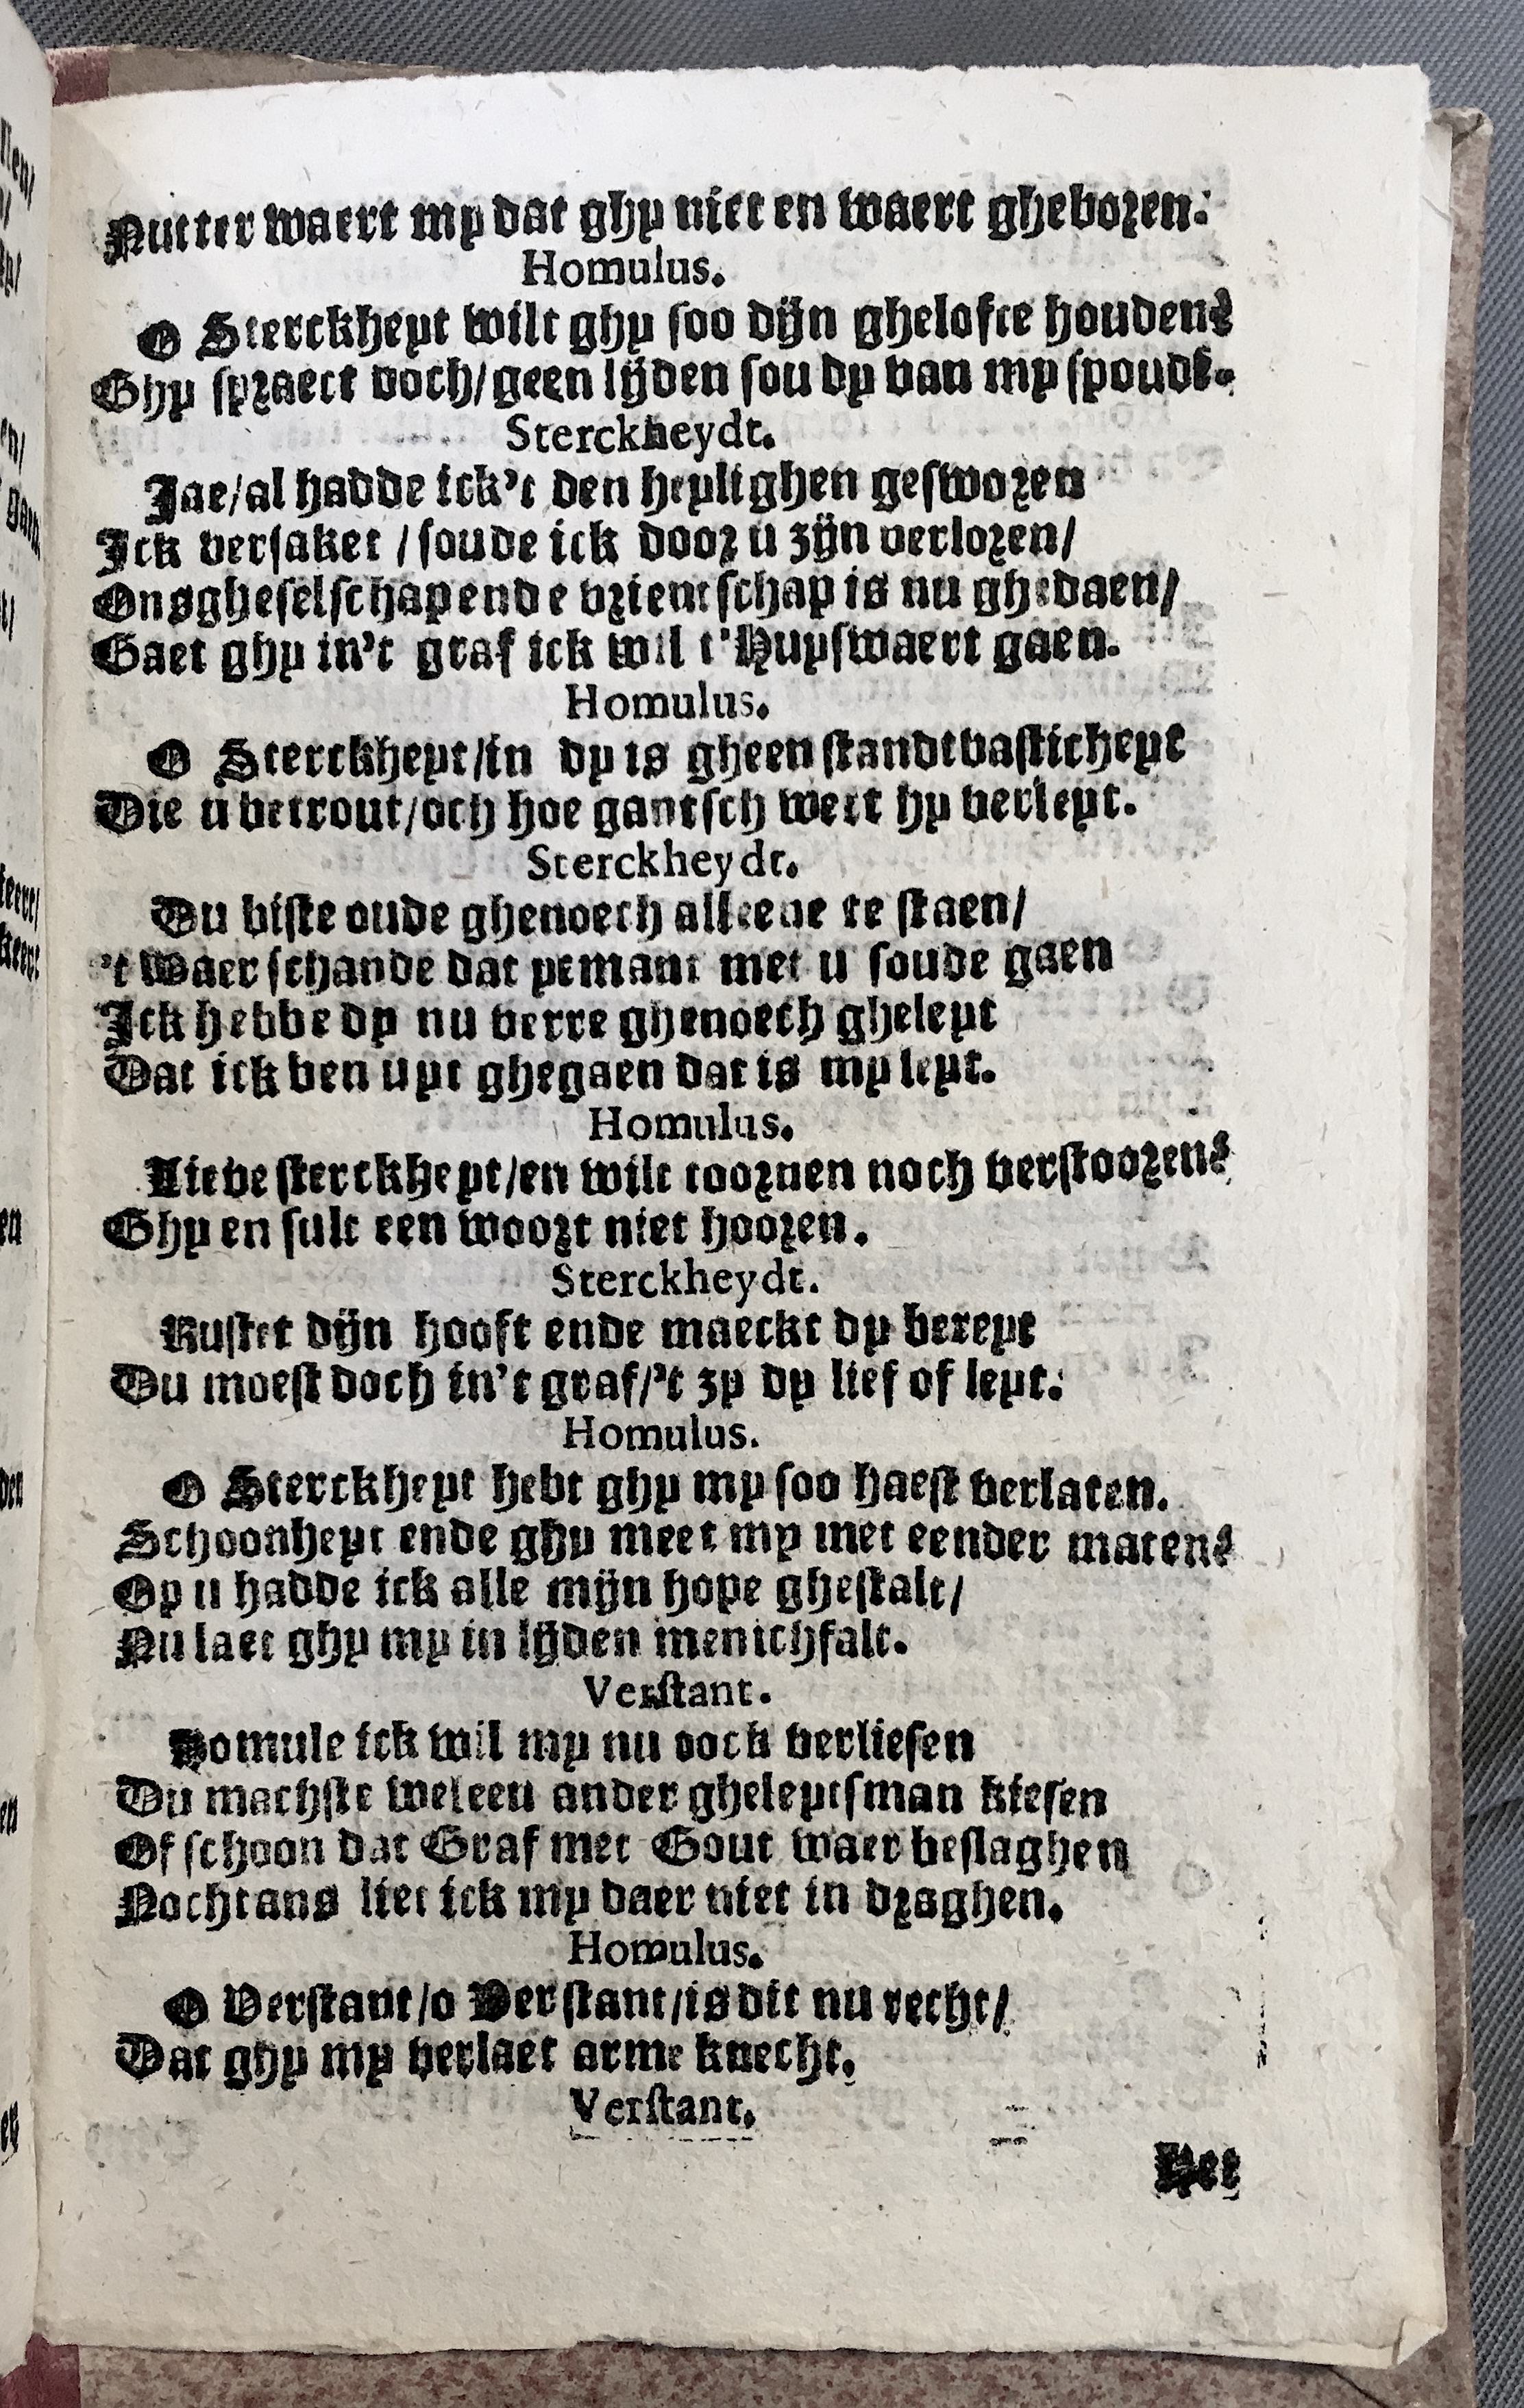 Nutter waert my dat ghy niet en waert gheboren.
Homulus.
O Sterckheyt wilt ghy soo dijn ghelofte houden?
Ghy spraect doch/geen lijden sou dy van my spoudē.
Sterckheydt.
Jae/al hadde ick't den heylighen gesworen
Ick versaket / soude ick door u zijn verloren/
Ons gheselschap ende vrientschap is nu ghedaen/
Gaet ghy in't graf ick wil t'Huyswaert gaen.
Homulus.
O Sterckheyt/in dy is gheen standtvasticheyt
Die u betrout/och hoe gantsch wert hy verleyt.
Sterckheydt.
Du biste oude ghenoech alleene te staen/
't Waer schande dat yemant met u soude gaen
Ick hebbe dy nu verre ghenoech gheleyt
Dat ick ben uyt ghegaen dat is my leyt.
Homulus.
Lieve sterckheyt/en wilt toornen noch verstooren?
Ghy en sult een woort niet hooren.
Sterckheydt.
Rustet dijn hooft ende maeckt dy bereyt
Du moest doch in't graf/'t zy dy lief of leyt.
Homulus.
O Sterckheyt hebt ghy my soo haest verlaten.
Schoonheyt ende ghy meet my met eender maten?
Op u hadde ick alle mijn hope ghestalt/
Nu laet ghy my in lijden menichfalt.
Verstant.
Homule ick wil my nu oock verliesen
Du machste wel een ander gheleytsman kiesen
Of schoon dat Graf met Gout waer beslaghen
Nochtans liet ick my daer niet in draghen.
Homulus.
O Verstant/o Verstant/is dit nu recht/
Dat ghy my verlaet arme knecht.
Verstant.
Het